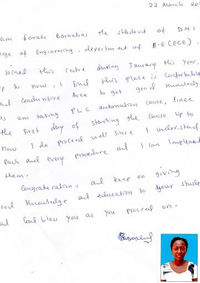 22 March 20
am Sarah Barnabas the student of DMI
ege of Engineering. department of B.E (ECE).
Joined this centre during January this year,
up to now, I find this place is comfortable
and conducive Area to get good knowledge.
as am taking PLC automation course, since
the first day of starting the course up to
now I do proceed well since I understand
each and every procedure and I can implement
them.
Congratulation, and keep on giving
ood knowledge and education to your stude
and God bless you as you proceed on.